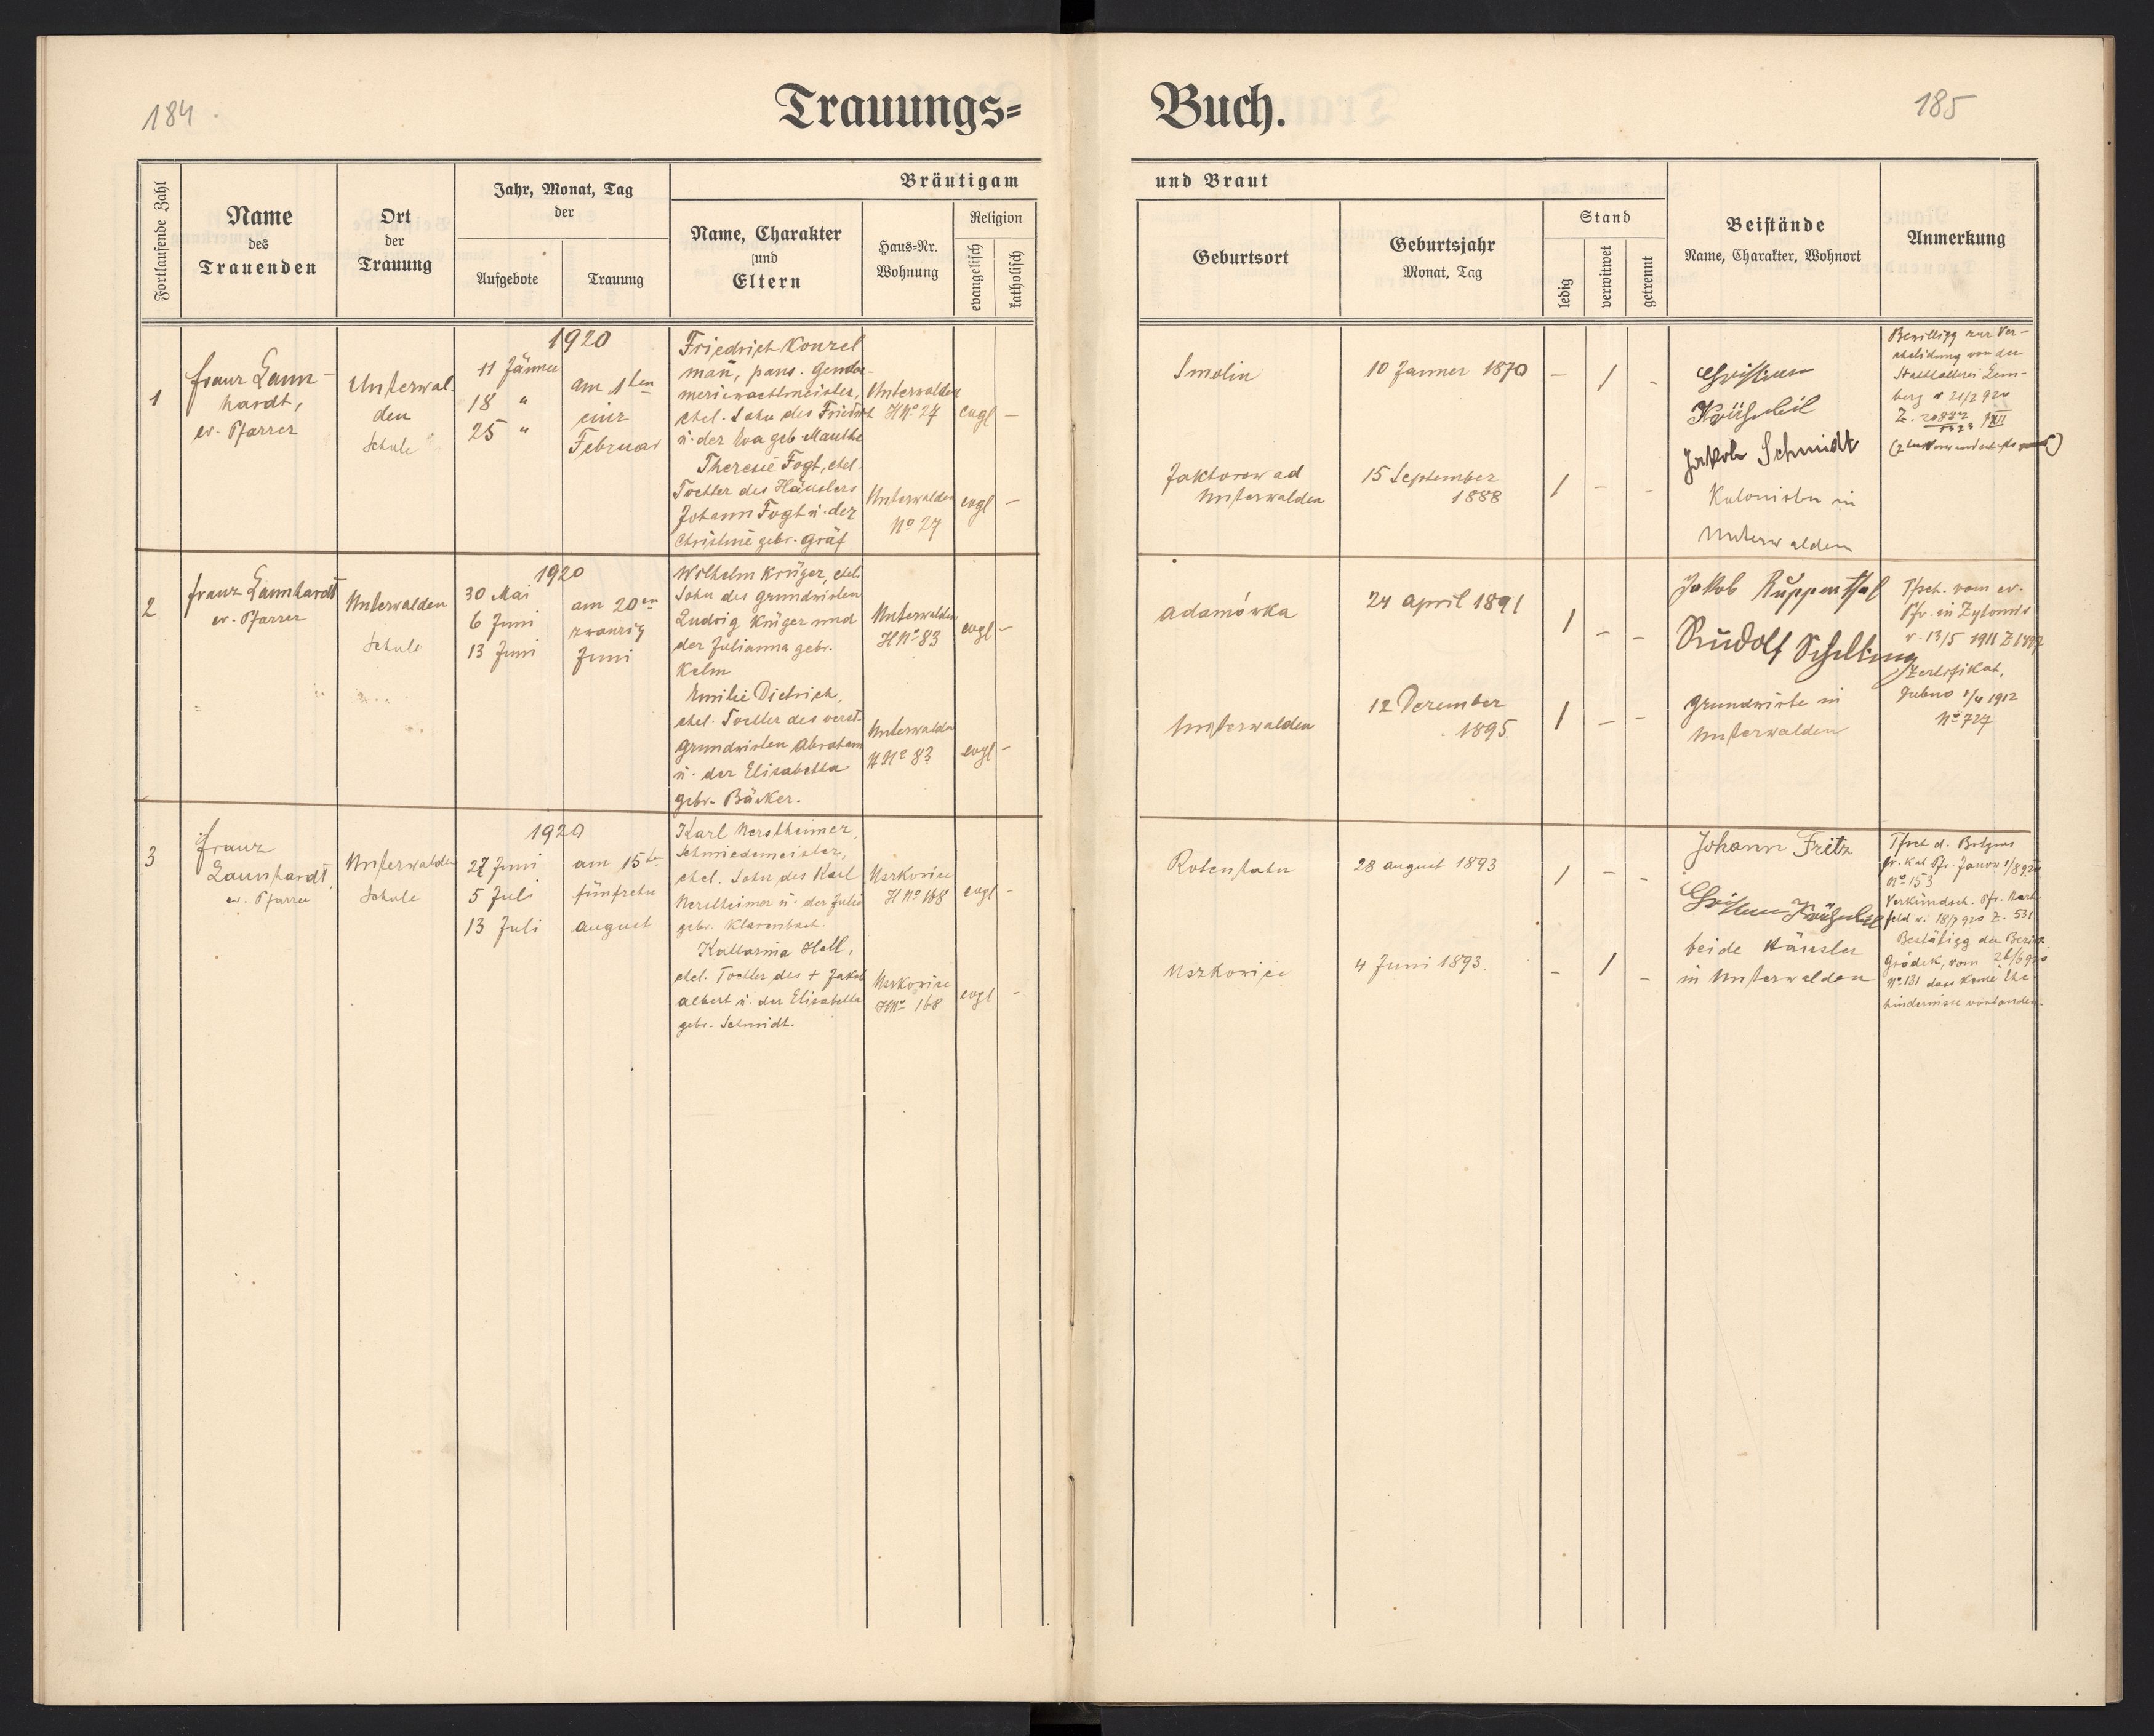 184
Trauungs=
Fortlaufende Zahl
Name
des
Trauenden
Ort
der
Trauung
Jahr, Monat, Tag
der
Aufgebote
Trauung
Bräutigam
Name, Charakter
und
Eltern
Haus=Nr.
Wohnung
Religion
evangelisch
katholisch
1
Franz Laun-
hardt,
ev. Pfarrer
Unterwal-
den
Schule
1920
11 Jänner
18 "
25 "
am 1ten
eins
Februar
Friedrich Konzel
man̄, pens. Gendar-
meriewachtmeister,
ehel. Sohn des Friedrich
u. der Eva geb. Mauthe
Unterwalden
H№ 27
evgl
–
Theresie Fogt, ehel.
Tochter des Häuslers
Johann Fogt u. der
Christine gebr. Gräf
Unterwalden
№ 27
evgl
–
2
Franz Launhardt
ev. Pfarrer
Unterwalden
Schule
1920
30 Mai
6 Juni
13 Juni
am 20en
zwanzig
Juni
Wilhelm Krüger, ehel.
Sohn des Grundwirten
Ludwig Krüger und
der Julianna gebr.
Kelm
Unterwalden
H№ 83
evgl
–
Emilie Dietrich,
ehel. Tochter des verst.
Grundwirten Abraham
u. der Elisabetha
gebr. Bäcker.
Unterwalden
H№ 83
evgl
–
3
Franz
Launhardt,
ev. Pfarrer
Unterwalden
Schule
1920
27 Juni
5 Juli
13 Juli
am 15te
fünfzehn
August
Karl Nerstheimer,
Schmiedemeister,
ehel. Sohn des Karl
Nerstheimer u. der Julie
gebr. Klarenbach.
Uszkowice
H№ 168
evgl
–
Katharina Hell,
ehel. Tochter des + Jakob
Albert u. der Elisabetha
gebr. Schmidt.
Uszkowice
H№ 168
evgl
–
185
Buch.
und Braut
Geburtsort
Geburtsjahr
Monat, Tag
Stand
ledig
verwitwet
getrennt
Beistände
Name, Charakter, Wohnort
Anmerkung
Smolin
10 Janner 1870
– / –
Christian
Jakob Schmidt
Kolonisten in
Unterwalden
Bewilligg zur Ver-
ehelichung von der
Statthalterei Lem-
berg v 21/2 920
Z.
XII
Jaktorow ad
Unterwalden
15 September
1888
/ – –
Adamówka
24 April 1891
/ – –
Jakob Ruppenthal
Rudolf Schilling
Grundwirte in
Unterwalden
Tfsch. vom ev.
Pfr. in Zytomir
v. 13/5 1911 Z
Zertifikat,
Dubno 1/4 1912
№ 727
Unterwalden
12 Dezember
1895.
/ – –
Rotenhahn
28 August 1893
/ – –
Johann Fritz
beide Häusler
in Unterwalden
Tfsch d. Btgms
gr. kat Pfr. Janow 1/8 920
№ 153
Verkündsch. Pfr. Hart-
feld v. 18/7 920 Z. 531
Bestätigg der Bezirk.
Gródek, vom 26/6 920
№ 131 dass keine Ehe-
hindernisse vorhanden.
Uszkowice
4 Juni 1893.
– / –